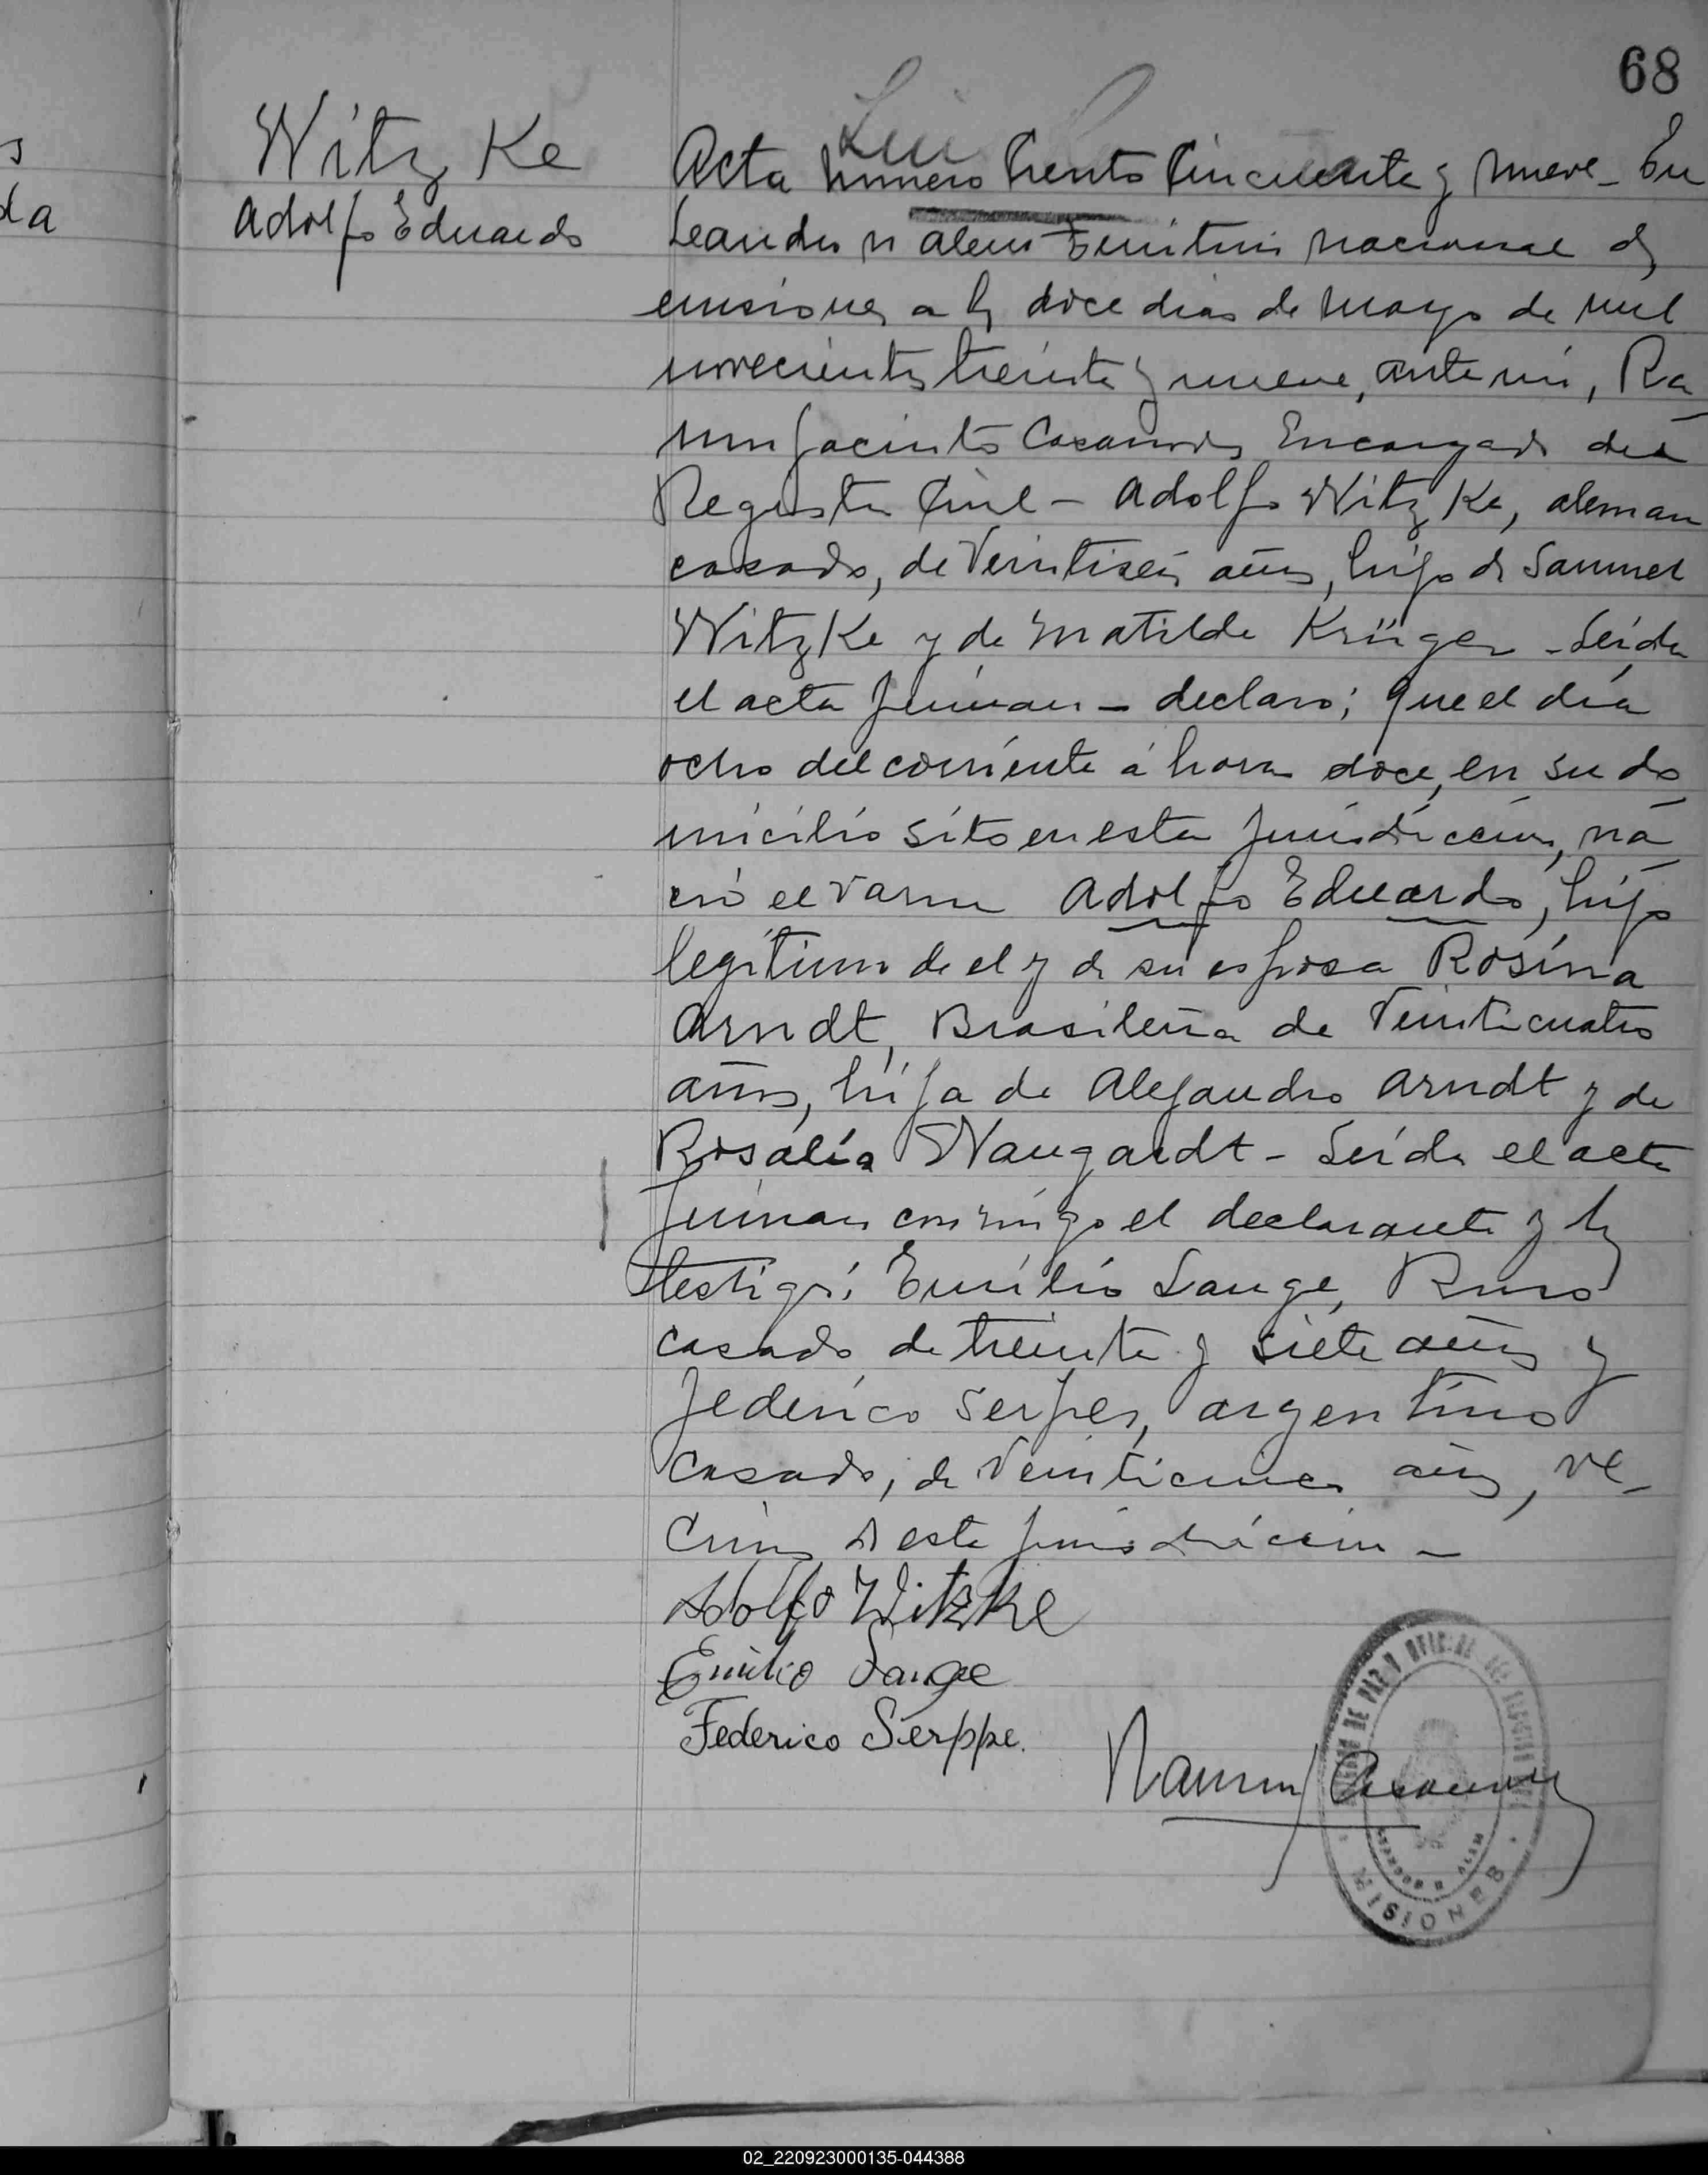 68
s
da
Witz Ke
Adolfo Eduardo
Acta número Ciento Cincuenta y nueve - En
Leandro N Alem Territorio nacional de
misiones a los doce dias de Mayo de mil
novecientos treinta y nueve, ante mi, Ra
mon Jacinto Casanova Encargado del
Registro Civil - Adolfo Witz Ke, aleman
casado, de Veintiseis años, hijo de Samuel
Witz Ke y de Matilde Krüger - Leida
el acta firman - declaro; que el día
ocho del corriente á horas doce, en su do
micilio sito en esta jurisdiccion, na
ció el varon Adolfo Eduardo, hijo
legítimo de el y de su esposa Rosina
Arndt, Brasileña de Veinticuatro
años, hija de Alejandro Arndt y de
Rosalía Waugardt - Leída el acta
firman conmigo el declarante y los
testigos: Emilio Lange, Ruso
casado de treinta y siete años y
Federico Serpes, argentino
casado, de Veinticinco años, ve-
cinos de esta jurisdiccion -
Adolfo Witzke
Emilio Lange
Federico Serppe.
Ramon J Casanova
MISIONES
LEANDRO N ALEM
02_220923000135-044388